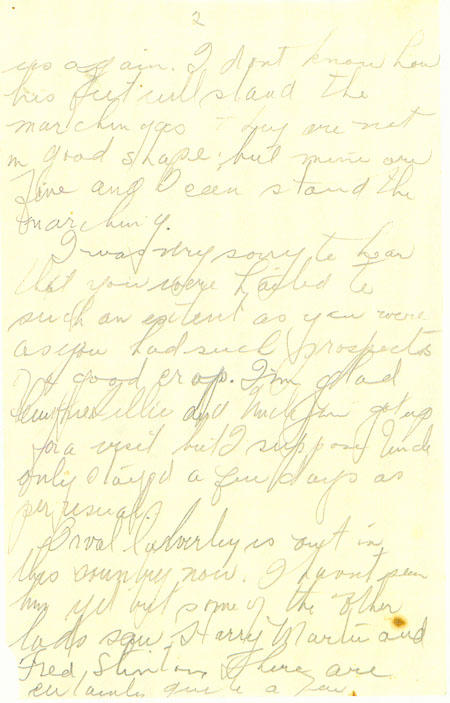 2
us again. I dont know how
his feet will stand the
marching as they are not
in good shape, but mine are
fine and I can stand the
marching.
I was very sorry to hear
that you were hailed to
such an extent as you were
as you had such prospects
of a good crop. I'm glad
Lillie and Uncle Jim got up
for a visit but I suppose Uncle
only stayed a few days as
per usual.
Orval is out in
this country now. I havnt seen
him yet but some of the other
lads saw Harry Martin and
Fred Stinton. There are
certainly quite a few